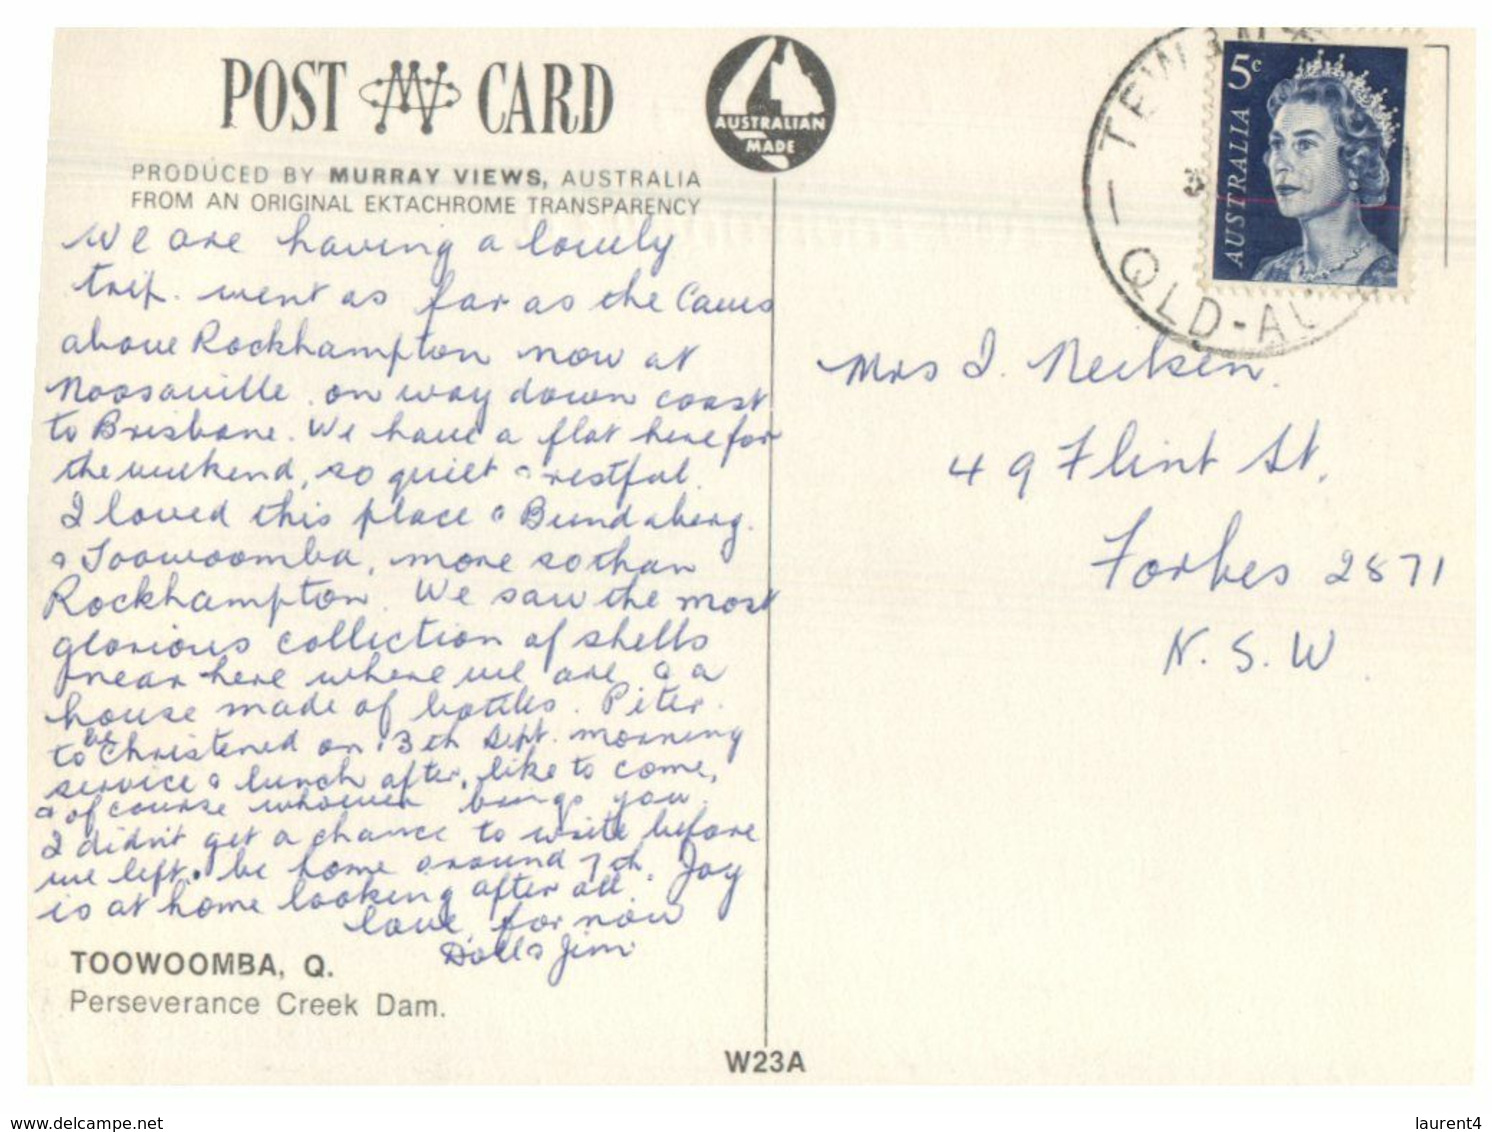 POST CARD
AUSTRALIAN
MADE
PRODUCED BY MURRAY VIEWS, AUSTRALIA
FROM AN ORIGINAL EKTACHROME TRANSPARENCY
We are having a lovely
trip. went as far as the Caves
above Rockhampton now at
Noosaville. on way down coast
to Brisbane. We have a flat here for
the weekend, so quiet & restful.
I loved this place & Bundaberg.
& Toowoomba, more so than
Rockhampton. We saw the most
glorious collection of shells
near here where we are, & a
house made of bottles. Peter.
to be Christened on 13th Sept. morning
service & lunch after, like to come,
& of course whoever brings you.
I didn't get a chance to write before
we left. be home around 7th. Joy
is at home looking after all.
love, for now
Doll & Jim
TOOWOOMBA, Q.
Perseverance Creek Dam.
W23A
5c
AUSTRALIA
QLD-AU
Mrs I.
49 Flint St,
Forbes 2871
N. S. W.
delcampe.net
laurent4